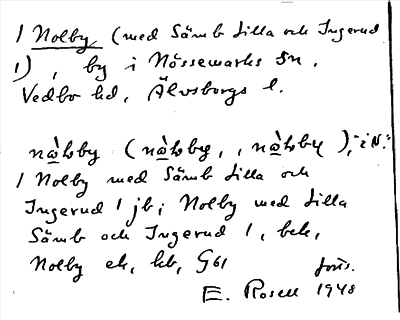 1 Nolby (med Sämb Lilla och Ingerud
1), by i Nössemarks sn,
Vedbo hd, Älvsborgs l.
(
1 Nolby med Sämb Lilla och
Ingerud 1 jb; Nolby med Lilla
Sämb och Ingerud 1, bek,
Nolby ek, kb, G61
E. Rosell 1948